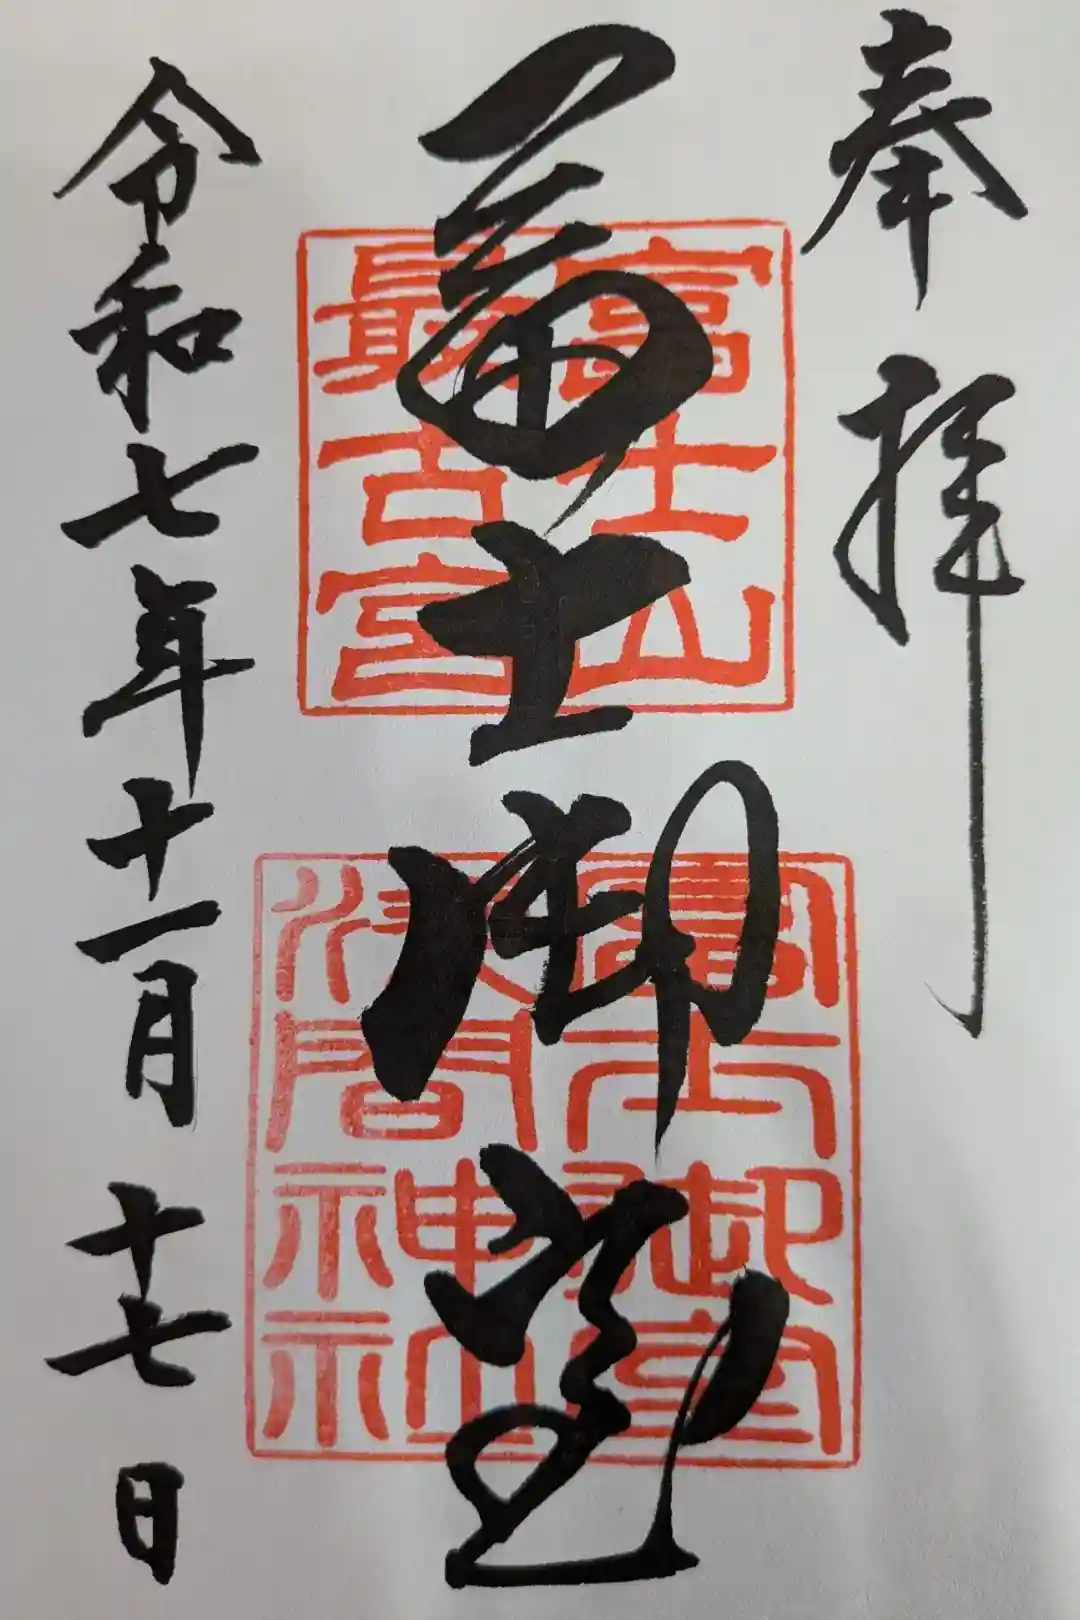 奉拝
富士山
最古宮
富士御室
富士御室
浅間神社
令和七年十一月十七日